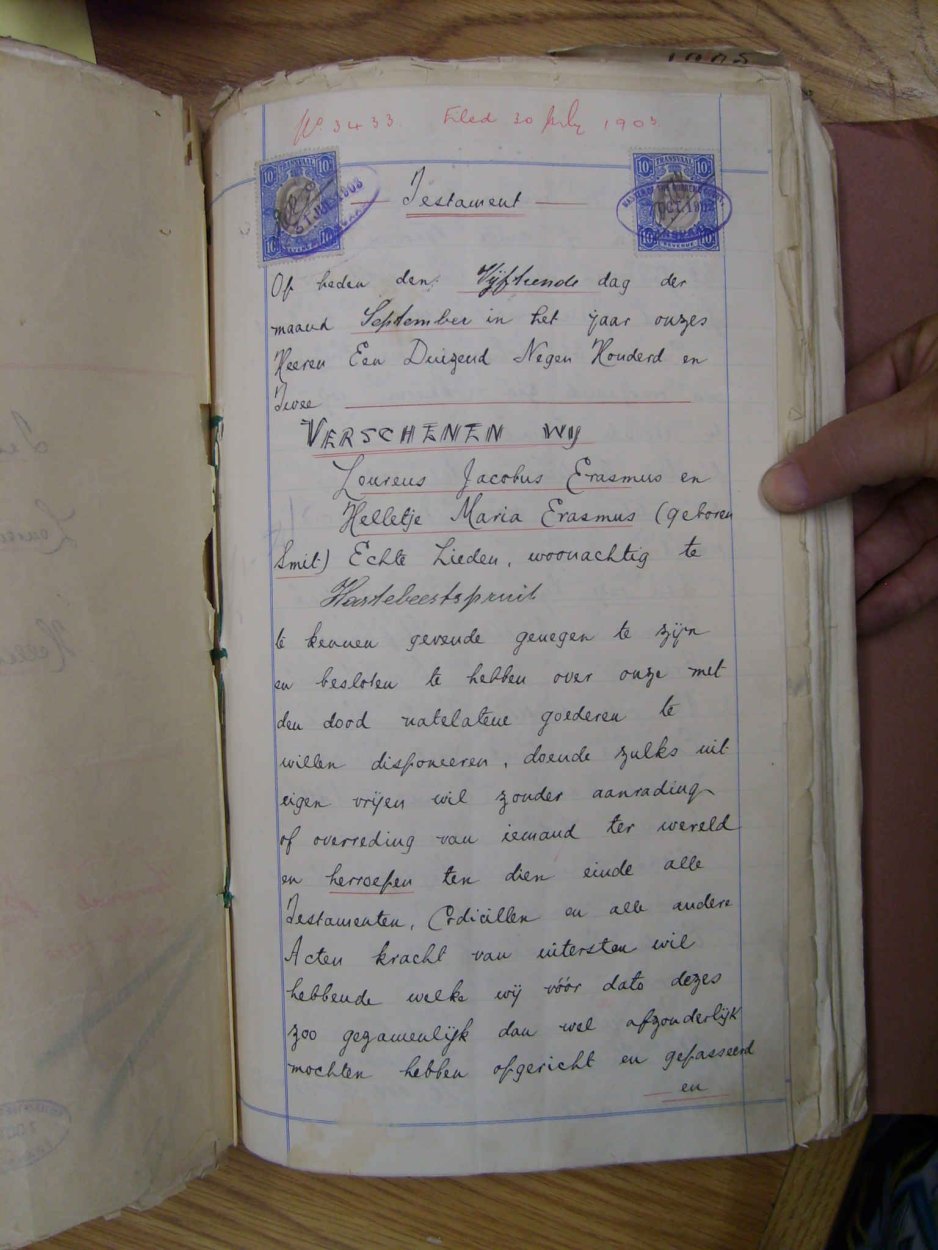 1903
No. 3433. Filed 30 July 1903.
TRANSVAAL
10/
10/
TRANSVAAL
10/
10/
REVENUE
OCT. 1902
Testament
Op heden den Vijftiende dag der
maand September in het jaar onzes
Heeren Een Duizend Negen Honderd en
Twee
VERSCHENEN WIJ
Lourens Jacobus Erasmus en
Helletje Maria Erasmus (geboren
Smit) Echte Lieden, woonachtig te
Hartebeestspruit
te kennen gevende genegen te zijn
en besloten te hebben over onze met
den dood natelatene goederen te
willen disponeeren, doende zulks uit
eigen vrijen wil zonder aanrading
of overreding van iemand ter wereld
en herroepen ten dien einde alle
Testamenten, Codicillen en alle andere
Acten kracht van uitersten wil
hebbende welke wij vóór dato dezes
zoo gezamenlijk dan wel afzonderlijk
mochten hebben opgericht en gepasseerd
en